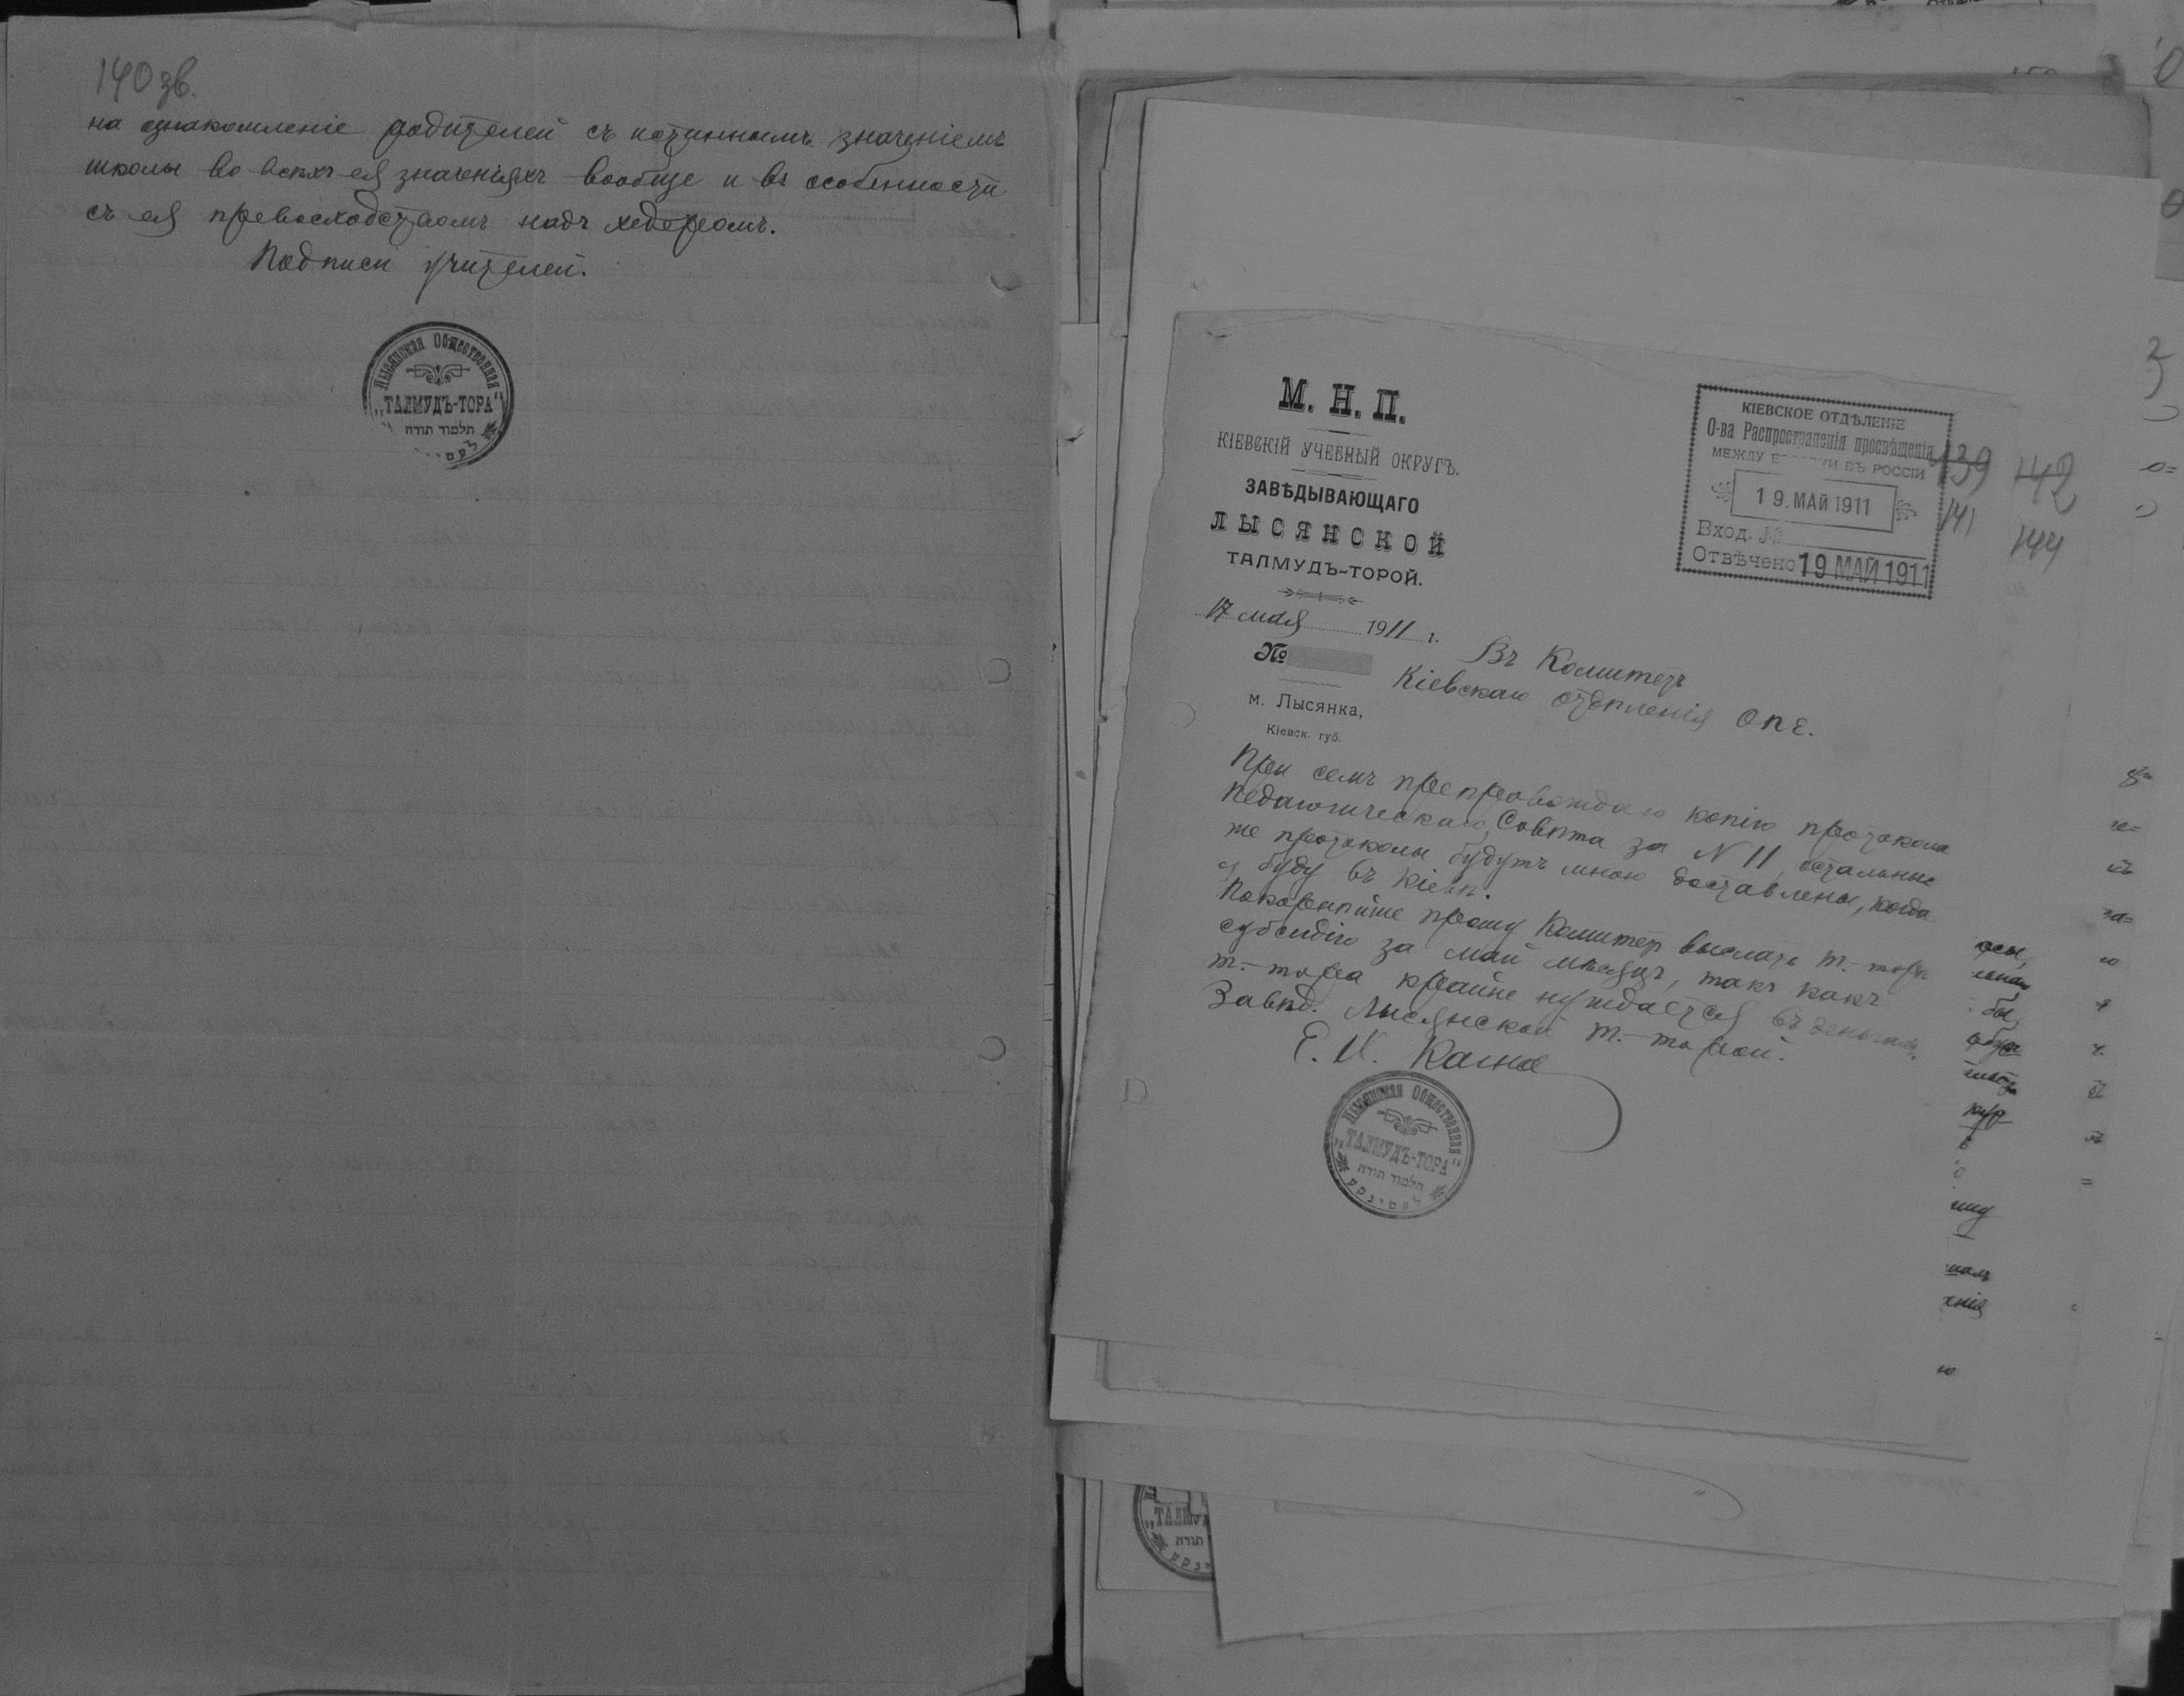 140 зв.
на ознакомленіе родителей съ истиннымъ значеніемъ
школы во всѣхъ ея значеніяхъ вообще и въ особенности
съ ея превосходствомъ надъ хедеромъ.
Подписи учителей.
Лысянская Общественная
„ТАЛМУДЪ-ТОРА“
תלמוד תורה
М. Н. П.
КІЕВСКІЙ УЧЕБНЫЙ ОКРУГЪ.
ЗАВѢДЫВАЮЩАГО
ЛЫСЯНСКОЙ
ТАЛМУДЪ-ТОРОЙ.
17 мая 1911 г.
№
м. Лысянка,
Кіевск. губ.
КІЕВСКОЕ ОТДѢЛЕНІЕ
О-ва Распространенія просвѣщенія
МЕЖДУ ЕВРЕЯМИ ВЪ РОССІИ
19. МАЙ 1911
Вход. №
Отвѣчено 19 МАЙ 1911
139 142
141 144
Въ Комитетъ
Кіевскаго отдѣленія ОПЕ.
При семъ препровождаю копію протокола
Педагогическаго Совѣта за N 11, остальные
же протоколы будутъ мною доставлены, когда
я буду въ Кіевѣ.
Покорнѣйше прошу Комитетъ выслать т.-торѣ
субсидію за май мѣсяцъ, такъ какъ
т.-тора крайне нуждается въ деньгахъ.
Завѣд. Лысянской т.-торой.
Лысянская Общественная
„ТАЛМУДЪ-ТОРА“
תלמוד תורה